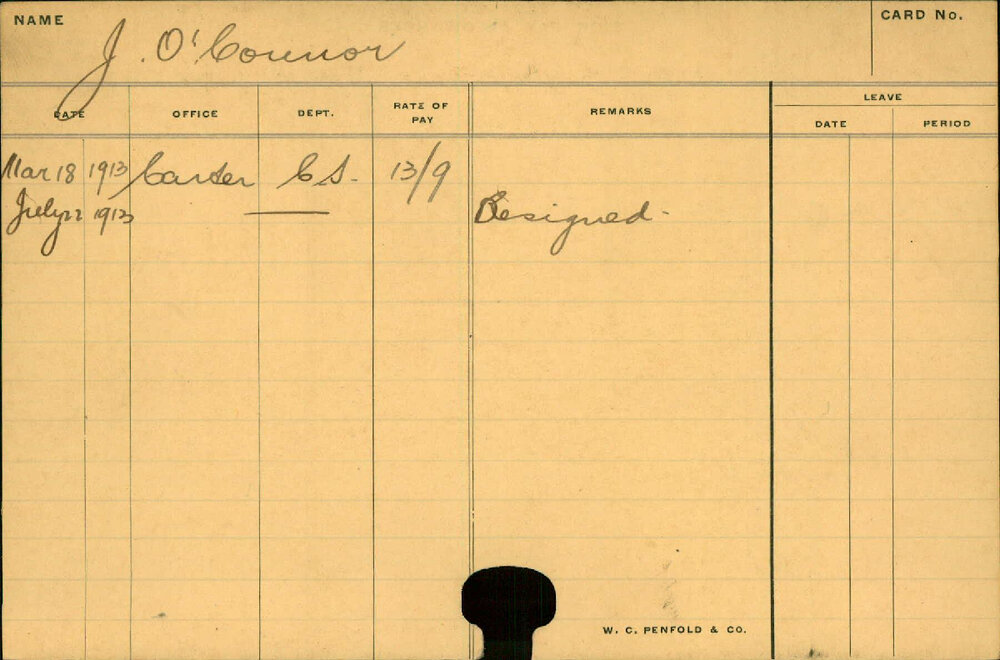 NAME
CARD No.
J. O'Connor
LEAVE
DATE OFFICE DEPT. RATE OF PAY REMARKS DATE PERIOD
Mar 18 1913 Carter C S. 13/9
July 22 1913 — Resigned.
W. C. PENFOLD & CO.